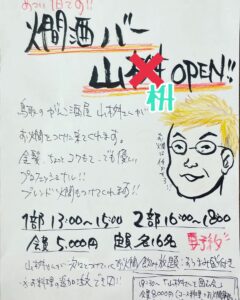 あつい1日です!!
燗酒バー
山枡 OPEN!!
枡
鳥取のがんこ酒屋 山枡さんが
お燗をつけに来てくれます。
金髪、ちょっとコワモテ、でも優しい
プロフェッショナル!!
ブレンド燗もつけてくれます!!
お燗に付ぞう
1部 13:00〜15:00 2部 16:00〜18:00
会費 5,000円 定員各16名 要予約
お燗飲み放題・おつまみ付き
※お料理の追加注文できます!!